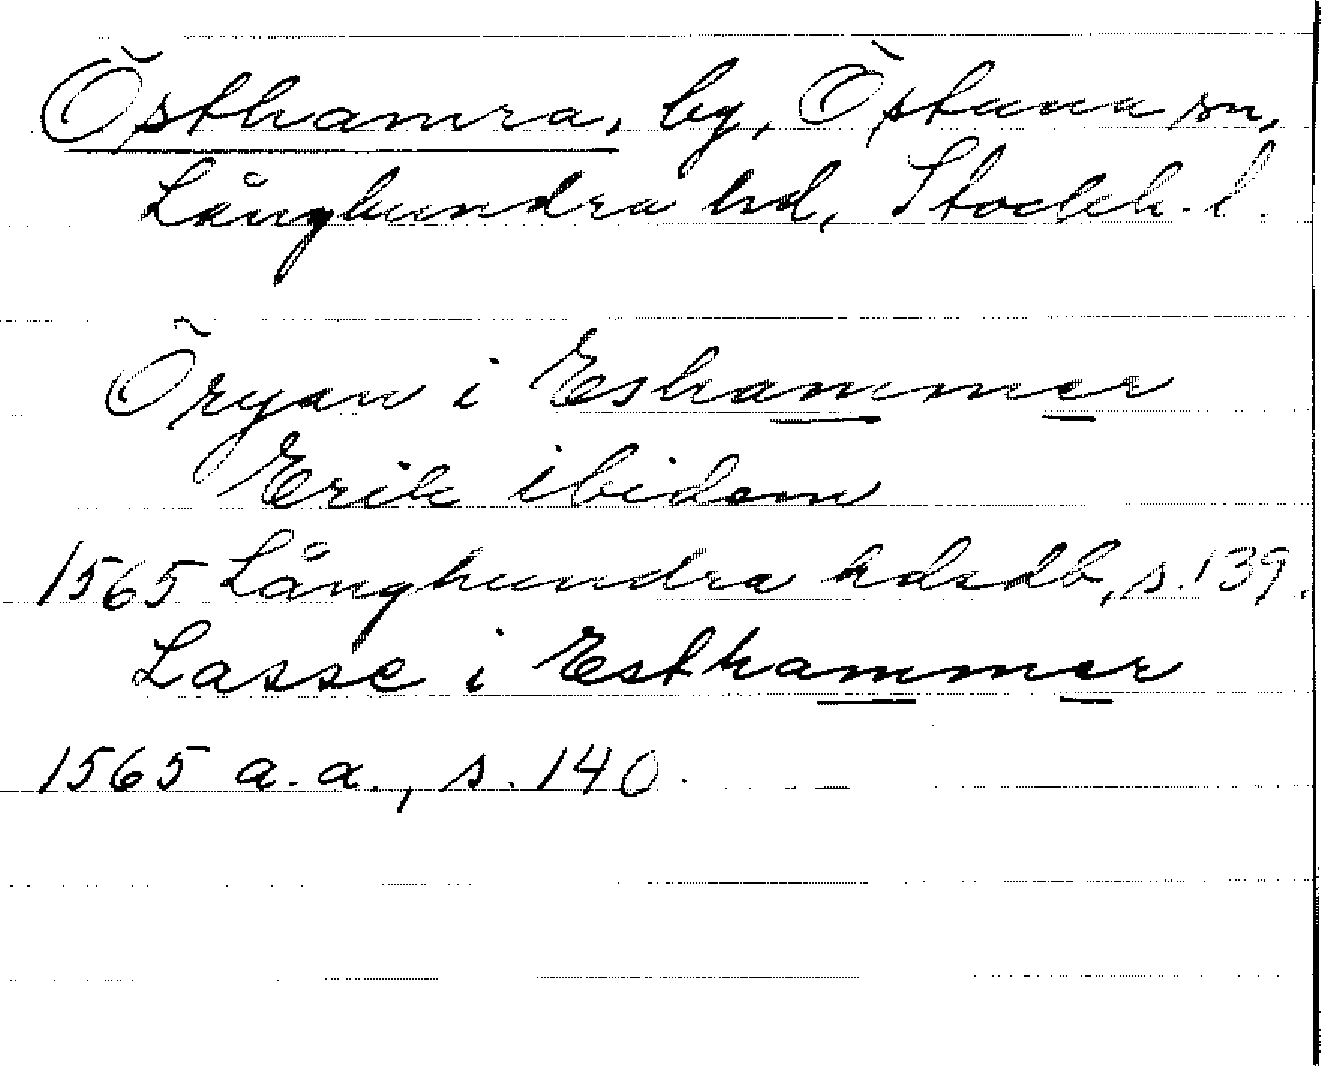 Östhamra, by, Östuna sn,
Långhundra hd, Stockh. l.
Öryan i Eshammer
Erik ibidem
1565 Långhundra hdsdb, s. 139.
Lasse i Esthammer
1565 a.a., s. 140.